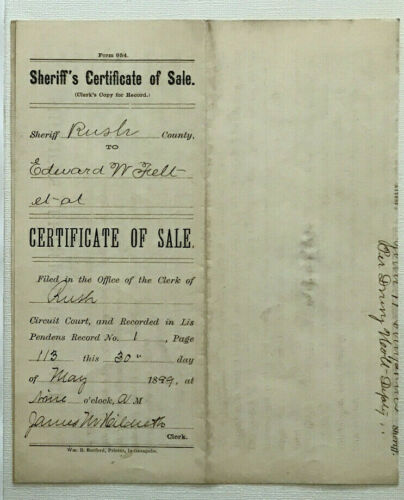 Form 664.
Sheriff's Certificate of Sale.
(Clerk's Copy for Record.)
Sheriff Rush County,
TO
Edward W Felt
et al
CERTIFICATE OF SALE.
Filed in the Office of the Clerk of
Rush
Circuit Court, and Recorded in Lis
Pendens Record No. 1, Page
113 this 30" day
of May 1899, at
o'clock, A M
James M Hildreth
Clerk.
Wm. B. Burford, Printer, Indianapolis.
Sheriff
Deputy